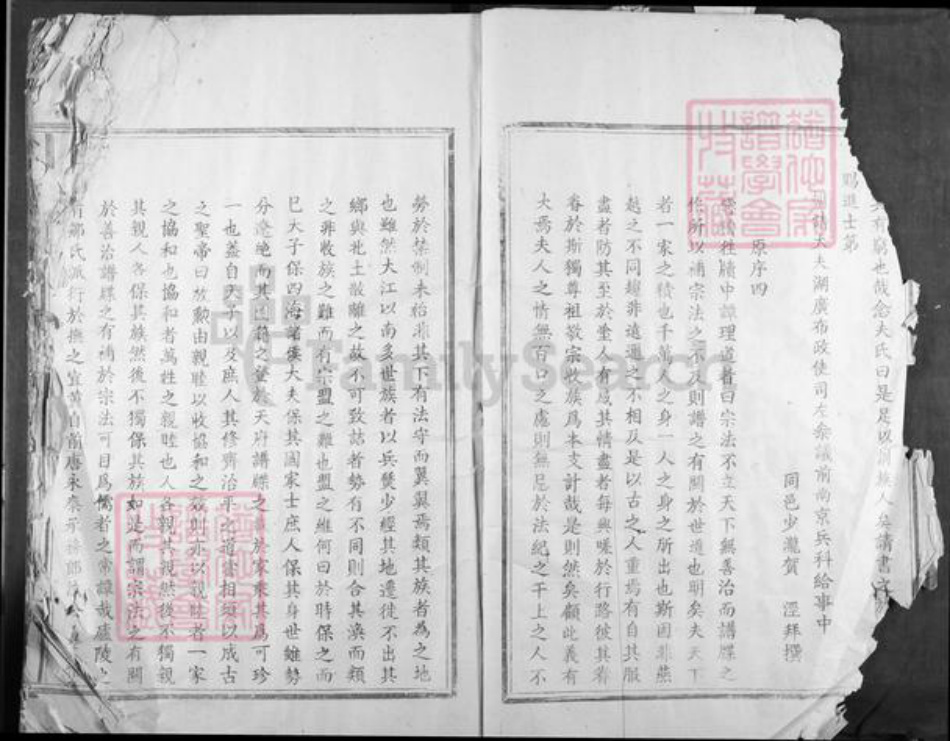 其有窮也哉念夫氏曰是足以
賜進士第
大夫湖廣布政使司左叅議前南京兵科給事中
同邑少瀧賀 涇拜撰
原序四
牘中譚理道者曰宗法不立天下無善治而譜牒之
所以補宗法之不及則譜之有關於世道也明矣夫天下
者一家之積也千萬人之身一人之身之所出也斯固非燕
越之不同趨非遠邇之不相及是以古之人重焉有自其服
盡者防其至於塗人有戚其情盡者每興嗟於行路彼其眷
眷於斯獨尊祖敬宗收族爲本支計哉是則然矣顧此義有
大焉夫人之情無百口之慮則無忌於法紀之干上之人不
勞於禁制未怡
其下有法守而翼翼焉類其族者為之地
也雖然大江以南多世族者以兵燹少經其地遷徙不出其
鄉與北土散離之故不可致詰者勢有不同則合其渙而類
之非收族之難而有宗盟之難也盟之維何曰於時保之而
已天子保四海諸侯大夫保其國家士庶人保其身世雖勢
分遼絶而其圖籍之登於天府譜牒之藏於家乘其爲可珍
一也蓋自天子以及庶人其修齊治平之道當相須以成古
之聖帝曰放勳由親睦以收協和之效則亦以親睦者一家
之協和也協和者萬姓之親睦也人各親其親然後不獨親
其親人各保其族然後不獨保其族如是而謂宗法之有關
於善治譜牒之有補於宗法可目爲儒者之常譚哉廬陵之
有鄒氏派衍於撫之宜黃自南唐永泰
FamilySearch
猶他家譜學會收藏